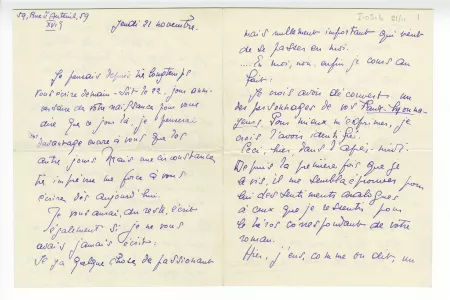 59, Rue d'Auteuil, 59
XVIe
Jeudi 21 novembre.
Je pensais depuis longtemps
vous écrire demain - soit le 22 - jour anni-
versaire de votre naissance pour vous
dire que ce jour là, je penserai
davantage encore à vous que les
autres jours. Mais une circonstance
imprévue me force à vous
écrire dès aujourd'hui.
Je vous aurais, du reste, écrit
également si je ne vous
avais jamais écrit.
Il y a quelque chose de passionnant
mais nullement important qui vient
de se passer en moi.
.... En moi, non. enfin je cours au
fait:
Je crois avoir découvert un
des personnages de vos Faux-Monna-
yeurs. Pour mieux m'exprimer, je
crois l'avoir identifié.
Ceci, hier dans l'après-midi.
Depuis la première fois que je
le vis, il me sembla éprouver pour
lui des sentiments analogues
à ceux que je ressentis pour
le héros correspondant de votre
roman.
Hier, j'eus, comme on dit, un